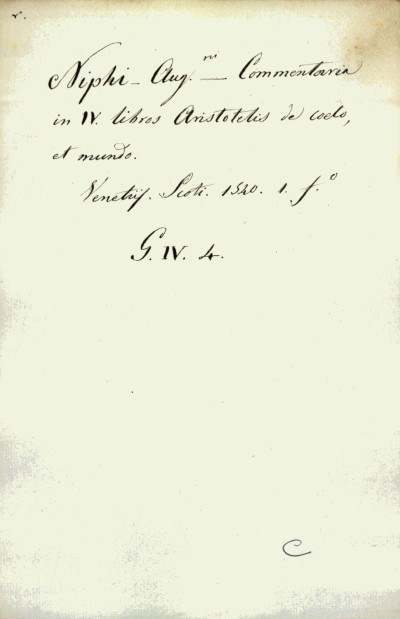 Niphi - Aug.ni — Commentaria
in IV. libros Aristotelis de coelo,
et mundo.
Venetijs. Scoti. 1540. 1. f.o
G. IV. 4.
C